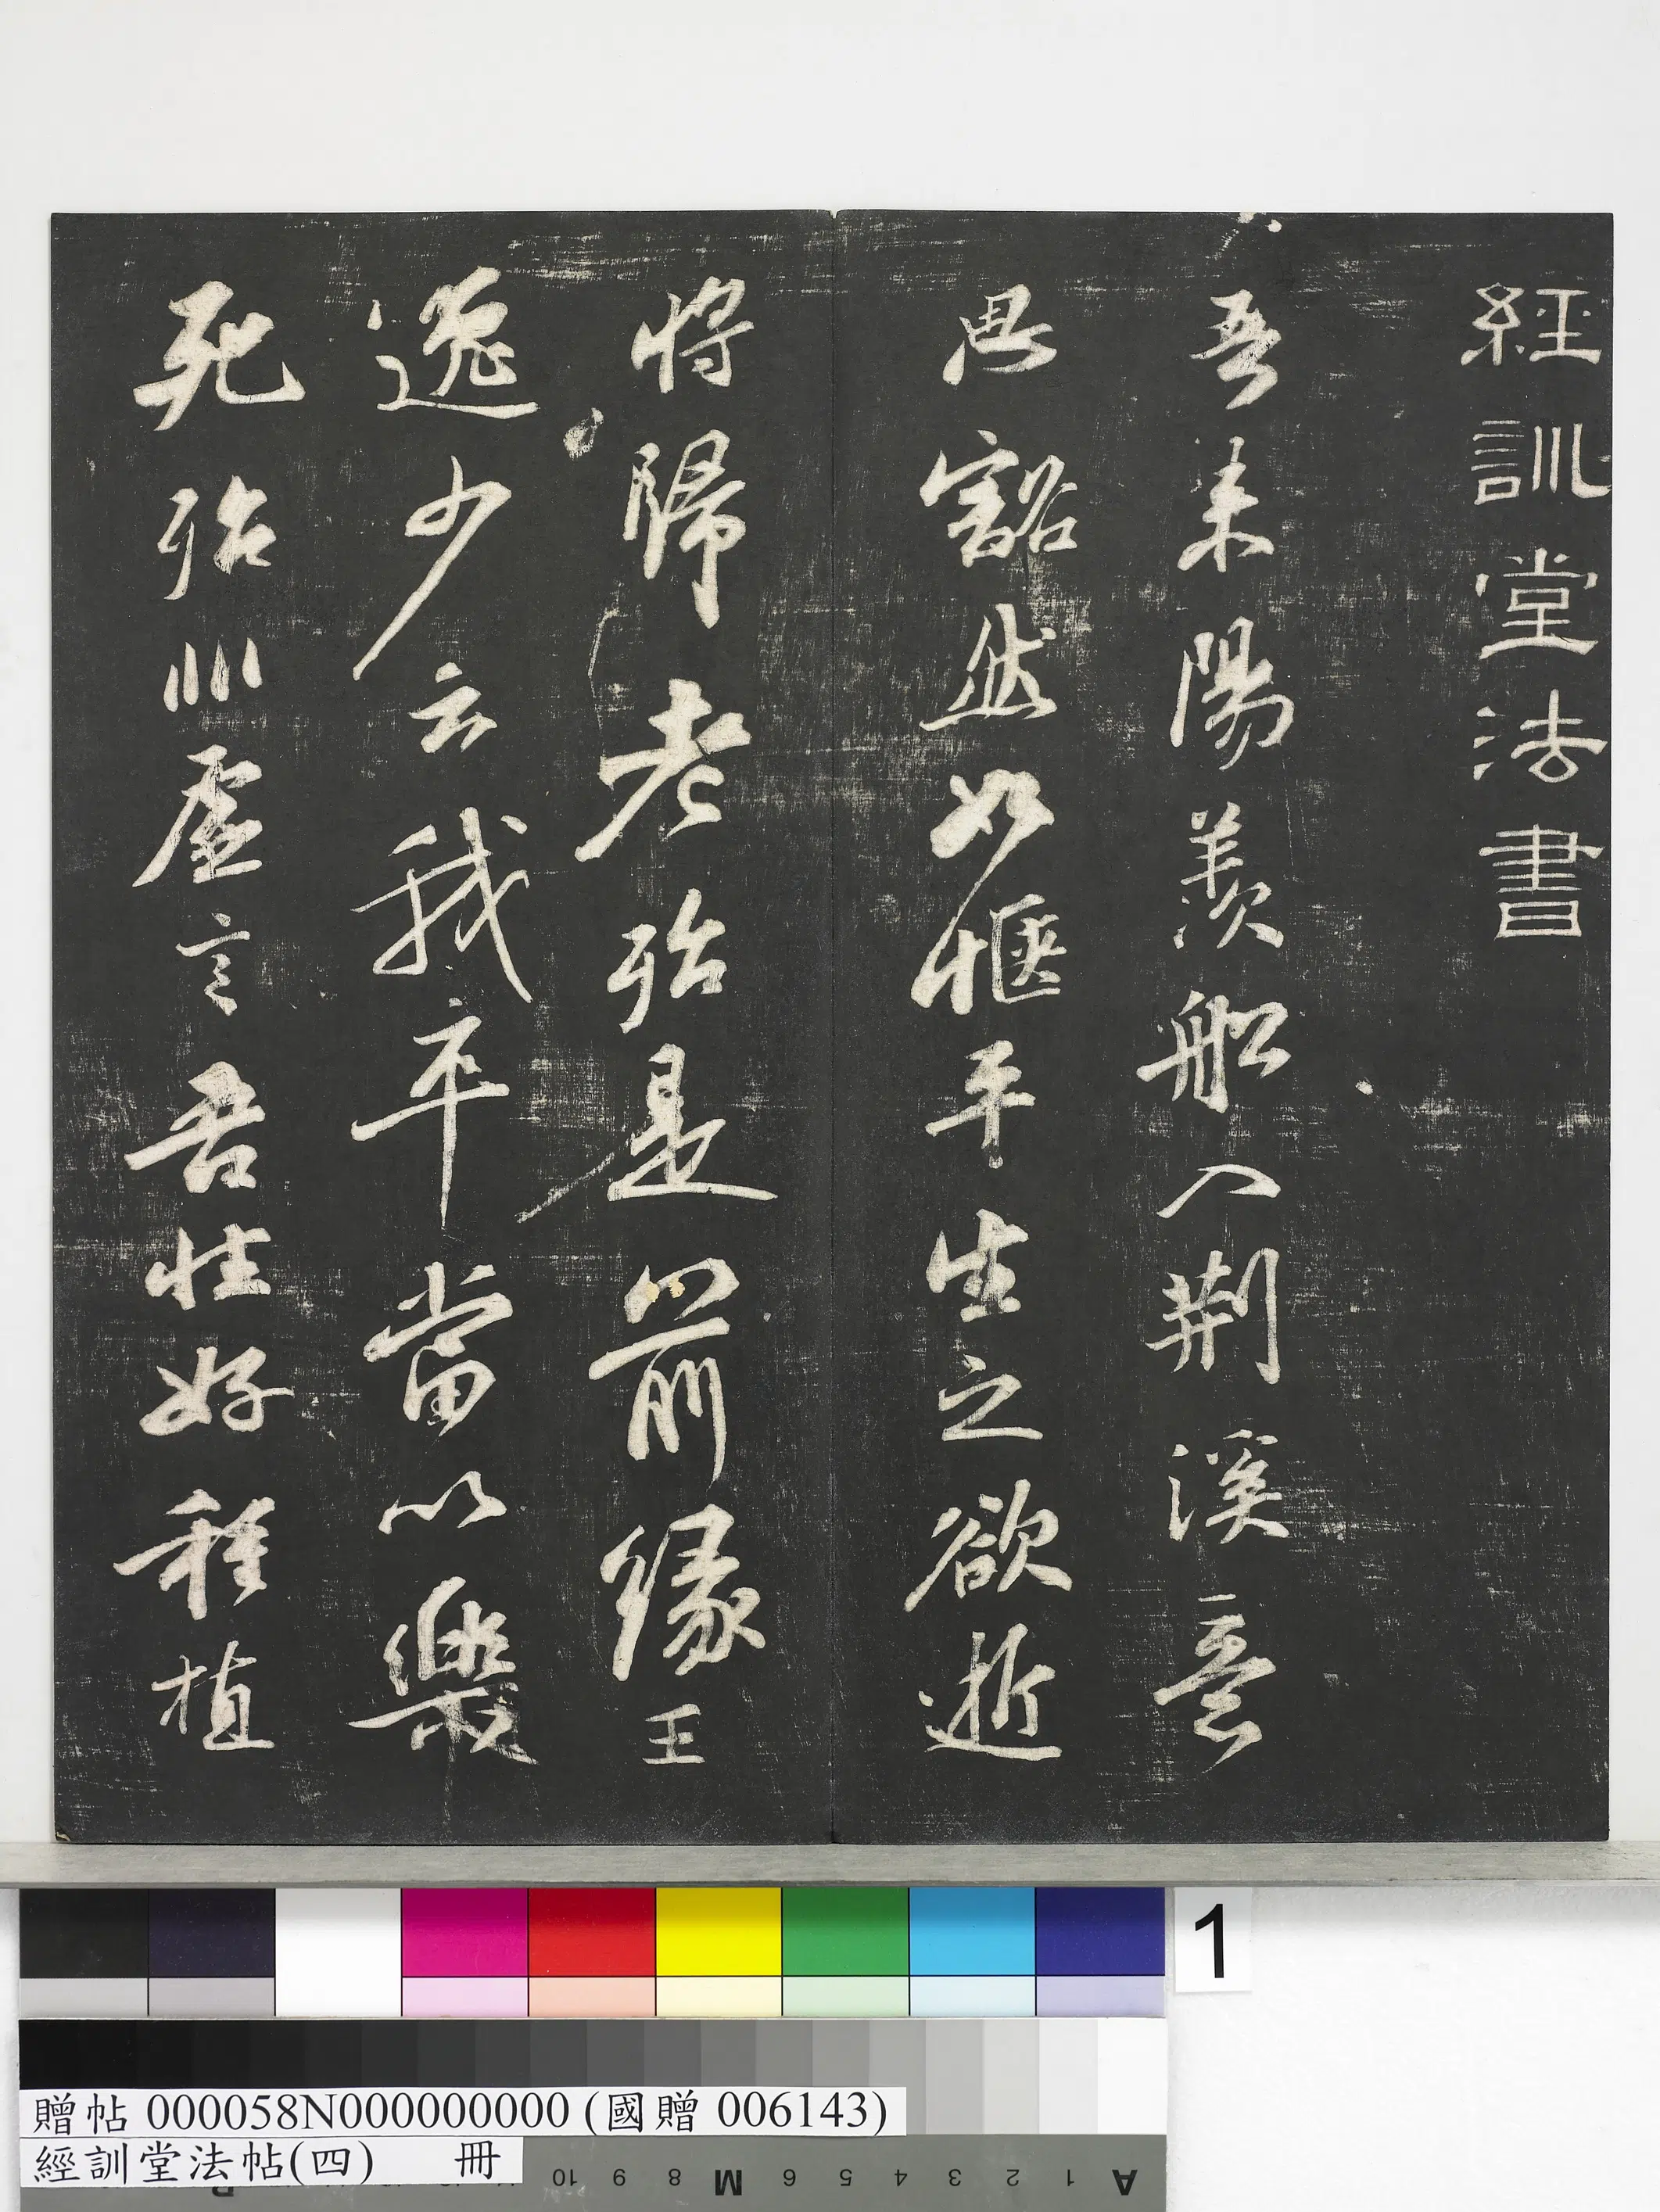 經訓堂法書
吾來陽羨船入荊溪意
思豁然如愜平生之欲逝
將歸老殆是前緣王
逸少云我卒當以樂
死殆非虛言吾性好種植
1
贈帖 000058N000000000 (國贈 006143)
經訓堂法帖(四) 冊
A 1 2 3 4 5 6 M 8 9 10